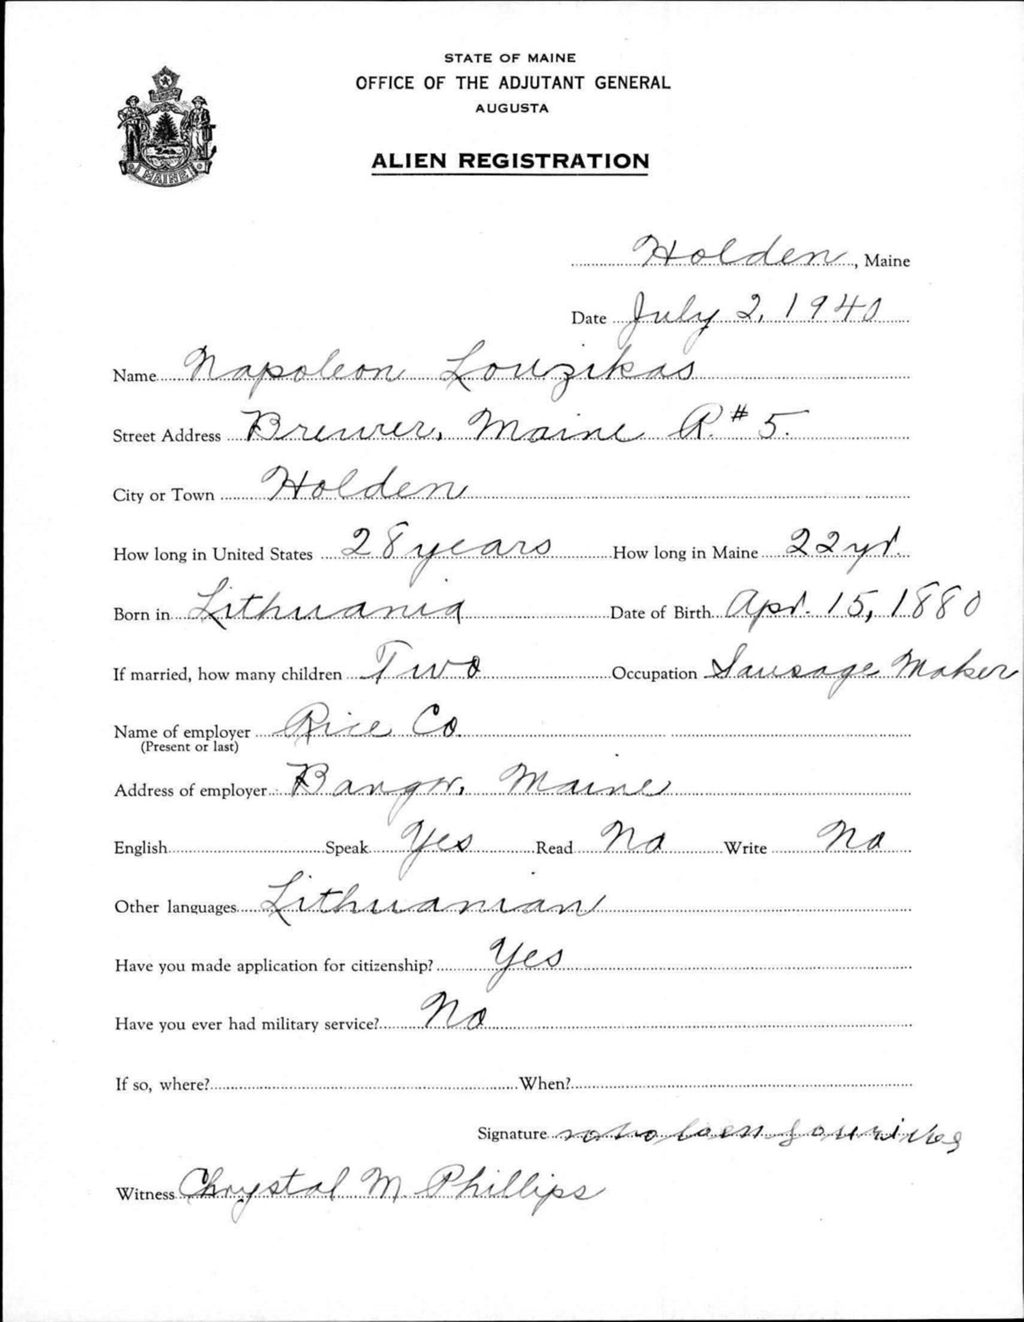 STATE OF MAINE
OFFICE OF THE ADJUTANT GENERAL
AUGUSTA
ALIEN REGISTRATION
MAINE
Holden, Maine
Date July 2, 1940
Name Napoleon Louzikas
Street Address Brewer, Maine R. # 5.
City or Town Holden
How long in United States 28 years How long in Maine 22 yr.
Born in Lithuania Date of Birth Apr. 15, 1880
If married, how many children Two Occupation Sausage Maker
Name of employer Rice Co.
(Present or last)
Address of employer Bangor, Maine
English Speak Yes Read No Write No
Other languages Lithuanian
Have you made application for citizenship? Yes
Have you ever had military service? No
If so, where? When?
Signature
Witness Chrystal M Phillips